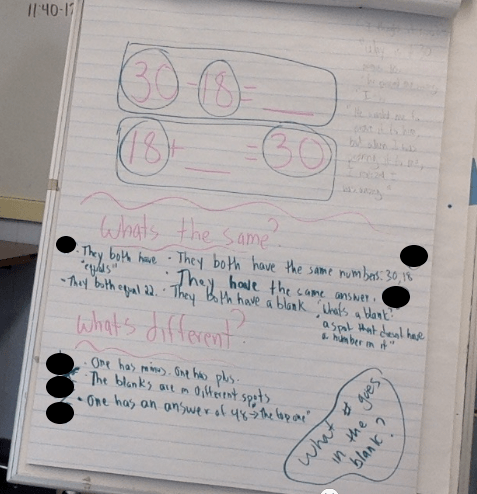 11:40-1
30 - 18 = ___
18 + ___ = 30
Whats the same?
· They both have "equals"
· They both have the same numbers: 30, 18
· They have the same answer.
· They both equal 22. · They both have a blank "Whats a blank?
a spot that doesnt have
a number in it"
What's different?
· One has minus. One has plus.
· The blanks are in different spots
· One has an answer of 48 → "the top one"
What # goes
in the
blank?